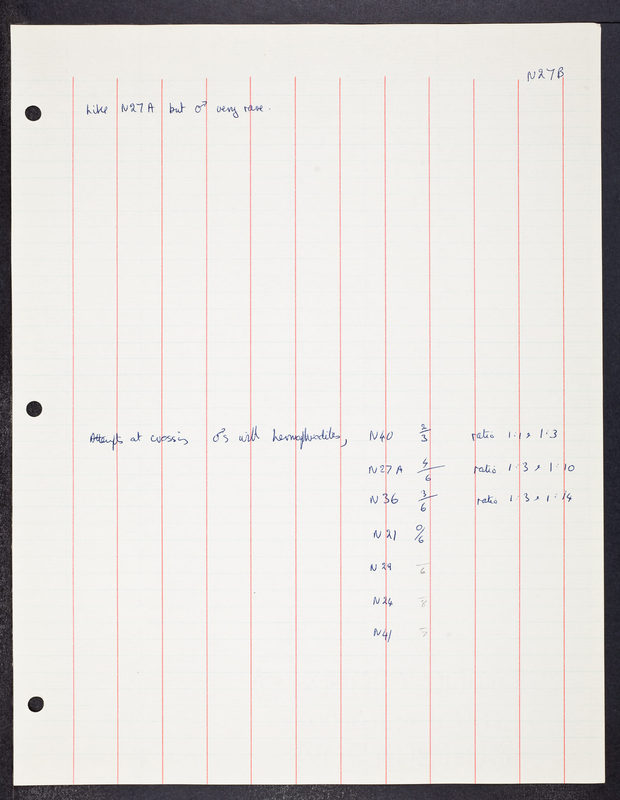 N27B
Like N27A but ♂ very rare.
Attempts at crossing ♂s with hermaphrodites, N40 2/3 ratio 1:1, 1:3
N27A 4/6 ratio 1:3, 1:10
N36 3/6 ratio 1:3, 1:14
N21 0/6
N29 –/6
N24
N41